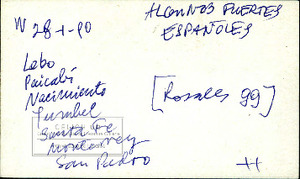 N 28-1-90
ALGUNOS FUERTES
ESPAÑOLES
Lobo
Paicabí
Nacimiento
Yumbel
Santa Fe
Monterrey
San Pedro
[Rosales 99]